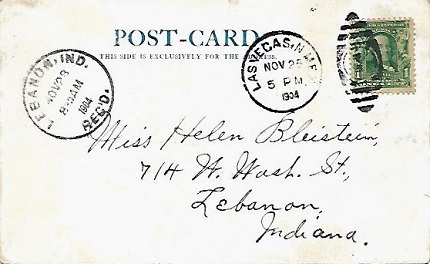 POST-CARD
THIS SIDE IS EXCLUSIVELY FOR THE ADDRESS.
LEBANON, IND.
NOV 28
8 AM
1904
REC'D.
LAS VEGAS, N. MEX.
NOV 25
5 PM
1904
Miss Helen Bleistein,
714 W. Wash. St.,
Lebanon,
Indiana.